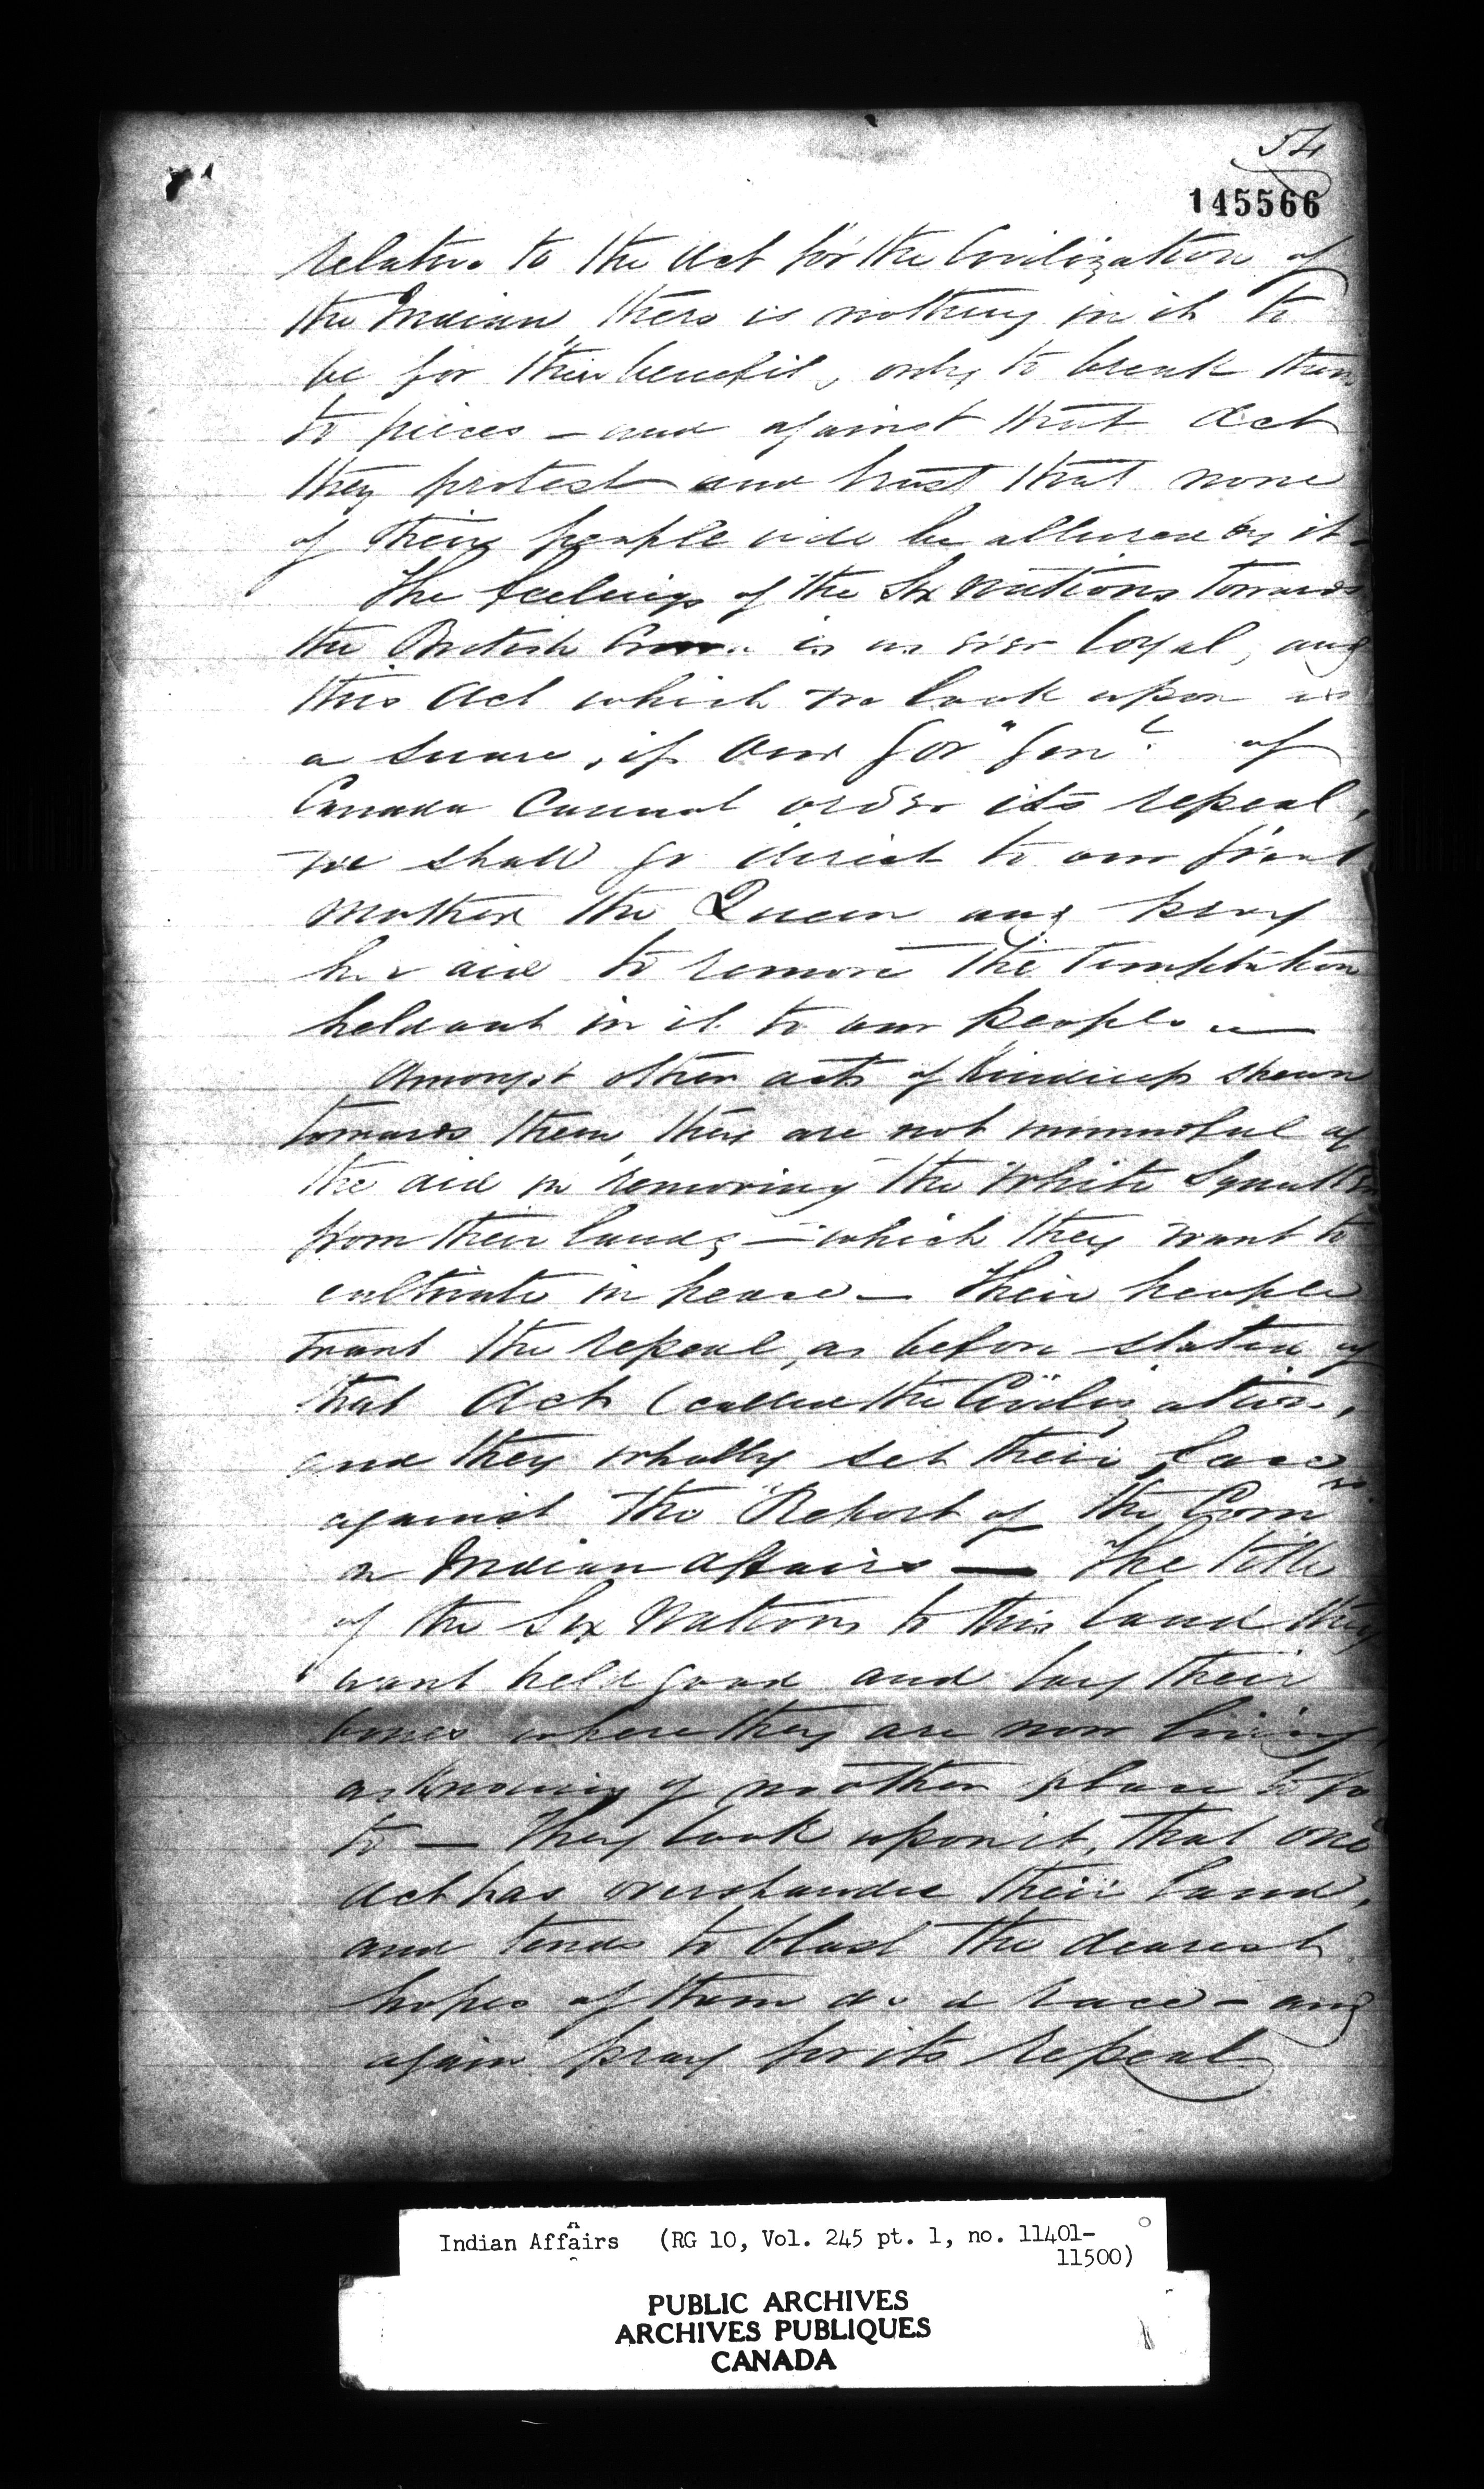 54
145566
relative to the Act for the Civilization of
the Indian, there is nothing in it to
be for their benefit, only to break them
to pieces – and against that Act
they protest and trust that none
of their people will be allured by it –
The feelings of the Six Nations towards
the British Crown is as ever loyal, and
this Act which we look upon as
a snare, if our Gov" Gen! of
Canada cannot order its repeal,
we shall go direct to our great
mother the Queen and pray
her aid to remove the temptation
held out in it to our people –
Amongst other acts of kindness shewn
towards them, they are not unmindful of
the aid in removing the White Squatters
from their lands – which they want to
cultivate in peace – Their people
want the repeal, as before stated of
that Act (called the Civilization,
and they wholly set their faces
against the "Report of the Com
on Indian Affairs – The title
of the Six Nations to this land they
want held good and lay their
bones where they are now living,
as knowing of no other place to go
to – They look upon it, that one
Act has overshaded their land,
and tends to blast the dearest
hopes of them as a race – and
again pray for its repeal
Indian Affairs (RG 10, Vol. 245 pt. 1, no. 11401-
11500)
PUBLIC ARCHIVES
ARCHIVES PUBLIQUES
CANADA